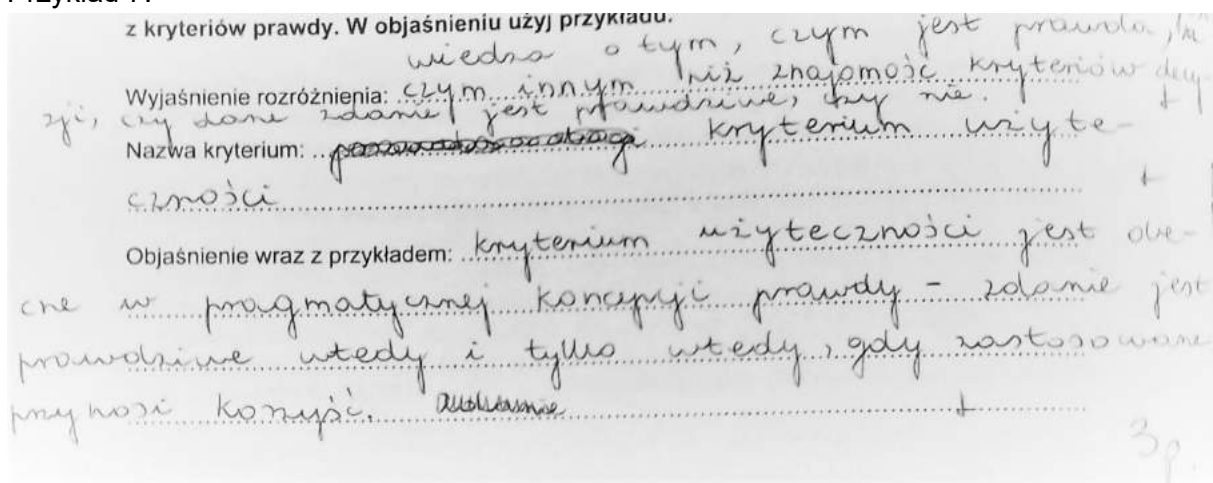 z kryteriów prawdy. W objaśnieniu użyj przykładu.
wiedza o tym, czym jest prawda,
Wyjaśnienie rozróżnienia: czym innym niż znajomość kryteriów decy
zji, czy dane zdanie jest prawdziwe, czy nie. +
Nazwa kryterium: kryterium użyte-
czności +
Objaśnienie wraz z przykładem: kryterium użyteczności jest obe-
cne w pragmatycznej koncepcji prawdy - zdanie jest
prawdziwe wtedy i tylko wtedy, gdy zastosowane
przynosi korzyść. +
3p.